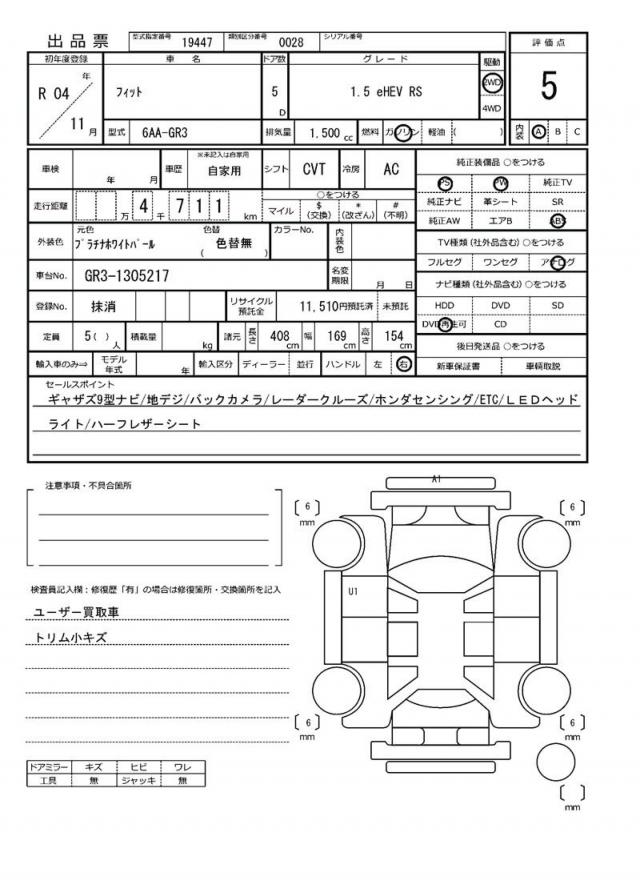 出品票
型式指定番号 19447 類別区分番号 0028 シリアル番号
初年度登録 車名 ドア数 グレード 駆動 評価点
R 04 年 11 月
フィット
5 D
1.5 eHEV RS
2WD
4WD
5
型式 6AA-GR3 排気量 1.500 cc 燃料 ガソリン 軽油 ( ) 内装 A B C
車検 年 月 車歴 ※未記入は自家用 自家用 シフト CVT 冷房 AC
走行距離 万 4 千 7 1 1 km
○をつける
マイル $(交換) *(改ざん) #(不明)
外装色 元色 プラチナホワイトパール 色替 色替無 ( ) カラーNo. 内装色
車台No. GR3-1305217 名変期限 月 日
登録No. 抹消 リサイクル預託金 11,510円預託済 未預託
定員 5( ) 人 積載量 kg 諸元 長さ 408 cm 幅 169 cm 高さ 154 cm
輸入車のみ⇒ モデル年式 年 輸入区分 ディーラー 並行 ハンドル 左 右
純正装備品 ○をつける
PS PW 純正TV
純正ナビ 革シート SR
純正AW エアB ABS
TV種類(社外品含む)○をつける
フルセグ ワンセグ アナログ
ナビ種類(社外品含む)○をつける
HDD DVD SD
DVD再生可 CD
後日発送品 ○をつける
新車保証書 車輌取説
セールスポイント
ギャザズ9型ナビ/地デジ/バックカメラ/レーダークルーズ/ホンダセンシング/ETC/LEDヘッド
ライト/ハーフレザーシート
注意事項・不具合箇所
検査員記入欄:修復歴「有」の場合は修復箇所・交換箇所を記入
ユーザー買取車
トリム小キズ
ドアミラー キズ ヒビ ワレ
工具 無 ジャッキ 無
A1
[ 6 ] mm
[ 6 ] mm
U1
[ 6 ] mm
[ 6 ] mm
[ ] mm